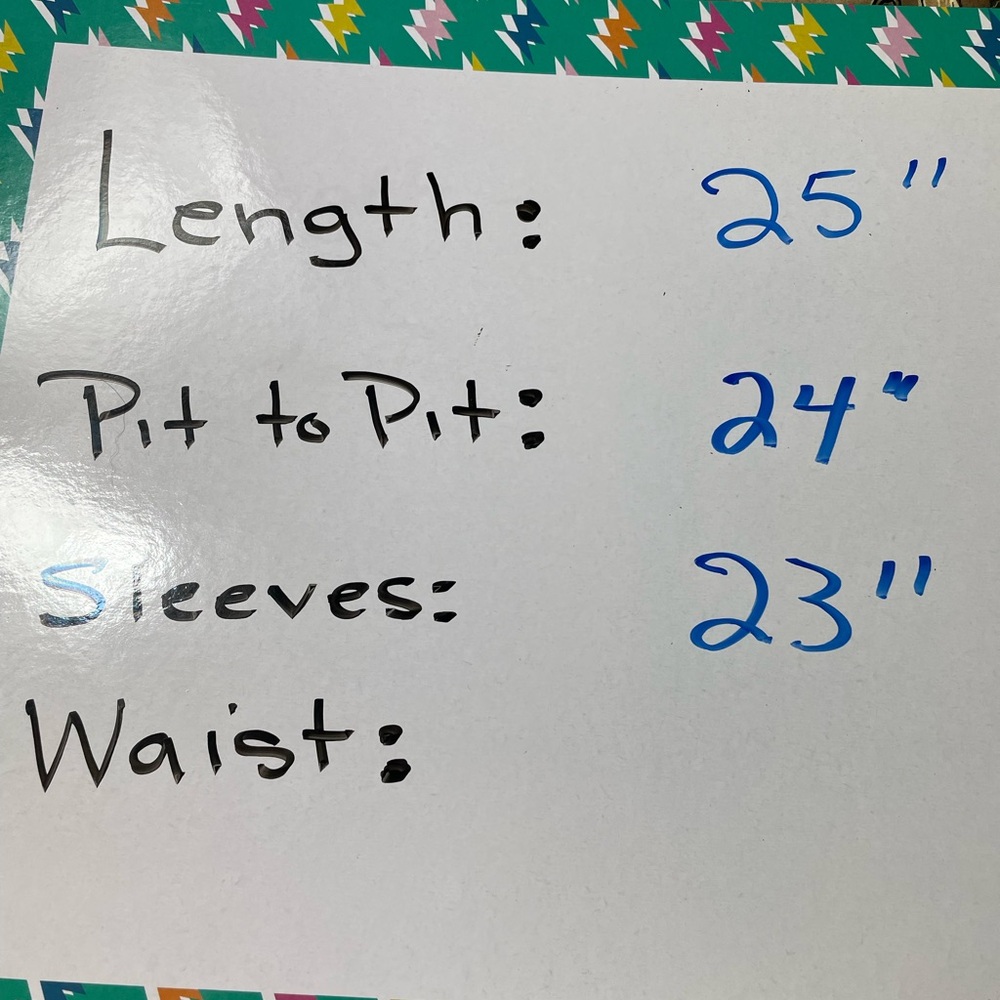 Length: 25"
Pit to Pit: 24"
Sleeves: 23"
Waist: